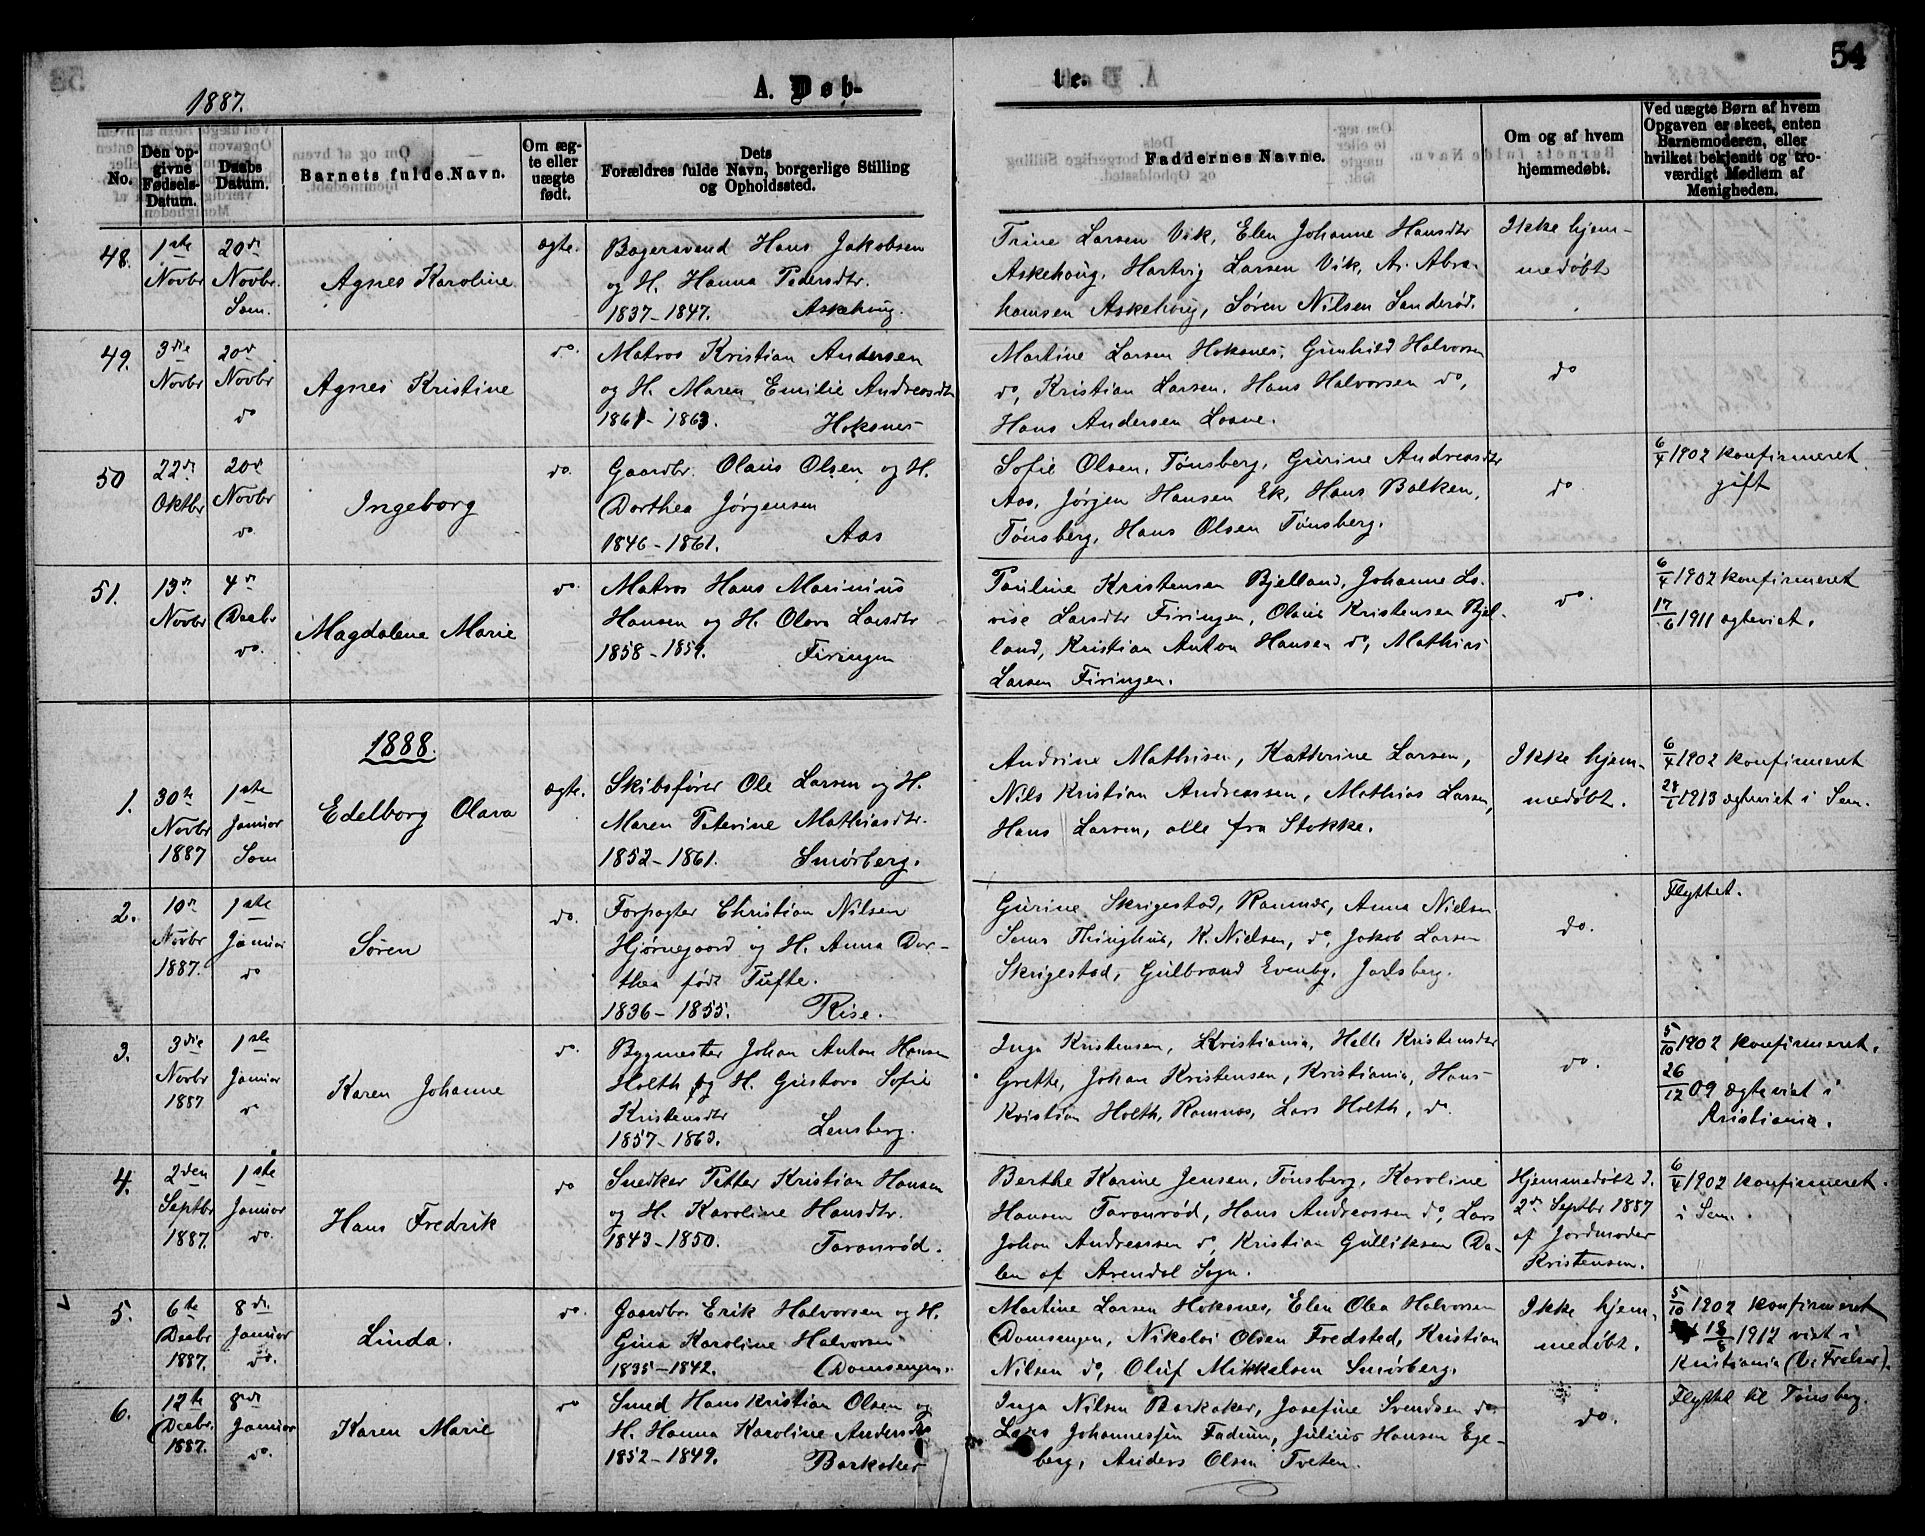 54
1887.
A. Døb-
te.
No.
Den op-
givne
Fødsels-
Datum.
Daabs
Datum.
Barnets fulde Navn.
Om æg-
te eller
uægte
født.
Dets
Forældres fulde Navn, borgerlige Stilling
og Opholdssted.
Faddernes Navne.
Om og af hvem
hjemmedøbt.
Ved uægte Børn af hvem
Opgaven er skeet, enten
Barnemoderen, eller
hvilket bekjendt og tro-
værdigt Medlem af
Menigheden.
48.
1ste
Novbr
20de
Novbr.
Sem.
Agnes Karoline
ægte.
Bagersvend Hans Jakobsen
og H. Hanna Pedersdtr.
1837-1847. Askehoug.
Trine Larsen Vik, Elen Johanne Hansdtr
Askehoug, Hartvig Larsen Vik, A. Abra-
hamsen Askehoug, Søren Nilsen Sanderød.
Ikke hjem-
medøbt
49.
3die
Novbr
20d
Novbr
do
Agnes Kristine
do.
Matros Kristian Andersen
og H. Maren Emilie Andreasdtr
1861-1863. Hoksnes
Martine Larsen Hoksnes, Gunhild Halvorsen
do, Kristian Larsen, Hans Halvorsen do,
Hans Andersen Loane.
do
50
22de
Oktbr
20d
Novbr
do.
Ingeborg
do.
Gaardbr. Olaus Olsen og H.
Dorthea Jørgensen
1846-1861. Aas
Sofie Olsen, Tønsberg, Gurine Andreasdtr
Aas, Jørjen Hansen Ek, Hans Balken,
Tønsberg, Hans Olsen Tønsberg.
do.
6/4 1902 konfirmeret.
gift
51.
13de
Novbr
4de
Decbr
do.
Magdalene Marie
do.
Matros Hans Marinius
Hansen og H. Olava Larsdtr
1858-1859. Firingen
Pauline Kristensen Bjelland, Johanne Lo-
vise Larsdtr Firingen, Olaus Kristensen Bjel-
land, Kristian Anton Hansen do, Mathias
Larsen Firingen.
do.
6/4 1902 konfirmeret
17/6 1911 ægteviet.
1888.
1.
30te
Novbr
1887
1ste
Januar
Sem
Edelborg Olava
ægte.
Skibsfører Ole Larsen og H.
Maren Peterine Mathiasdtr.
1852-1861. Smørberg.
Andrine Mathisen, Katherine Larsen,
Nils Kristian Andreassen, Mathias Larsen,
Hans Larsen, alle fra Stokke.
Ikke hjem-
medøbt.
6/4 1902 konfirmeret
1913 ægteviet i Sem.
2.
10de
Novbr
1887.
1ste
Januar
do
Søren
do.
Forpagter Christian Nilsen
Hjørnegaard og H. Anna Dor-
thea født Tufte.
1836-1855. Rise.
Gurine Skrigestad, Ramnæs, Anna Nielsen
Sems Thinghus, K. Nielsen, do, Jakob Larsen
Skrigestad, Gulbrand Evenby, Jarlsberg.
do.
Flyttet.
3.
3die
Novbr
1887
1ste
Januar
do
Karen Johanne
do.
Bygmester Johan Anton Hansen
Holth og H. Gustava Sofie
Kristensdtr
1857-1863. Lensberg.
Inga Kristensen, Kristiania, Helle Kristensdtr
Grette, Johan Kristensen, Kristiania, Hans
Kristian Holth, Ramnæs, Lars Holth, do.
do.
5/10 1902 konfirmeret.
26/12 09 ægteviet i
Kristiania.
4.
2den
Septbr
1887.
1ste
Januar
do.
Hans Fredrik
do
Snedker Petter Kristian Hansen
og H. Karoline Hansdtr.
1843-1850. Taranrød.
Berthe Karine Jensen, Tønsberg, Karoline
Hansen Taranrød, Hans Andreassen do, Lars
Johan Andreassen do, Kristian Gulliksen Da-
len af Arendal Sogn.
Hjemmedøbt d.
2de Septbr 1887
af Jordmoder
Kristensen.
6/4 1902 konfirmeret.
i Sem.
5.
6te
Decbr
1887.
8de
Januar
do.
Linda.
do.
Gaardbr. Erik Halvorsen og H.
Gina Karoline Halvorsen
1835-1842. Domsengen.
Martine Larsen Hoksnes, Elen Olea Halvorsen
Domsengen, Nikolai Olsen Fredsted, Kristian
Nilsen do, Oluf Mikkelsen Smørberg.
Ikke hjem-
medøbt.
5/10 1902 konfirmeret
18/8 1912 viet i
Kristiania (V. Frelser).
6.
12te
Decbr.
1887.
8de
Januar
do.
Karen Marie
do
Smed Hans Kristian Olsen og
H. Hanna Karoline Andersdtr
1852-1849. Barkaker
Inga Nilsen Barkaker, Josefine Svendsen do.
Lars Johannessen Fadum, Julius Hansen Ege-
berg, Anders Olsen Tveten.
do.
Flyttet til Tønsberg.